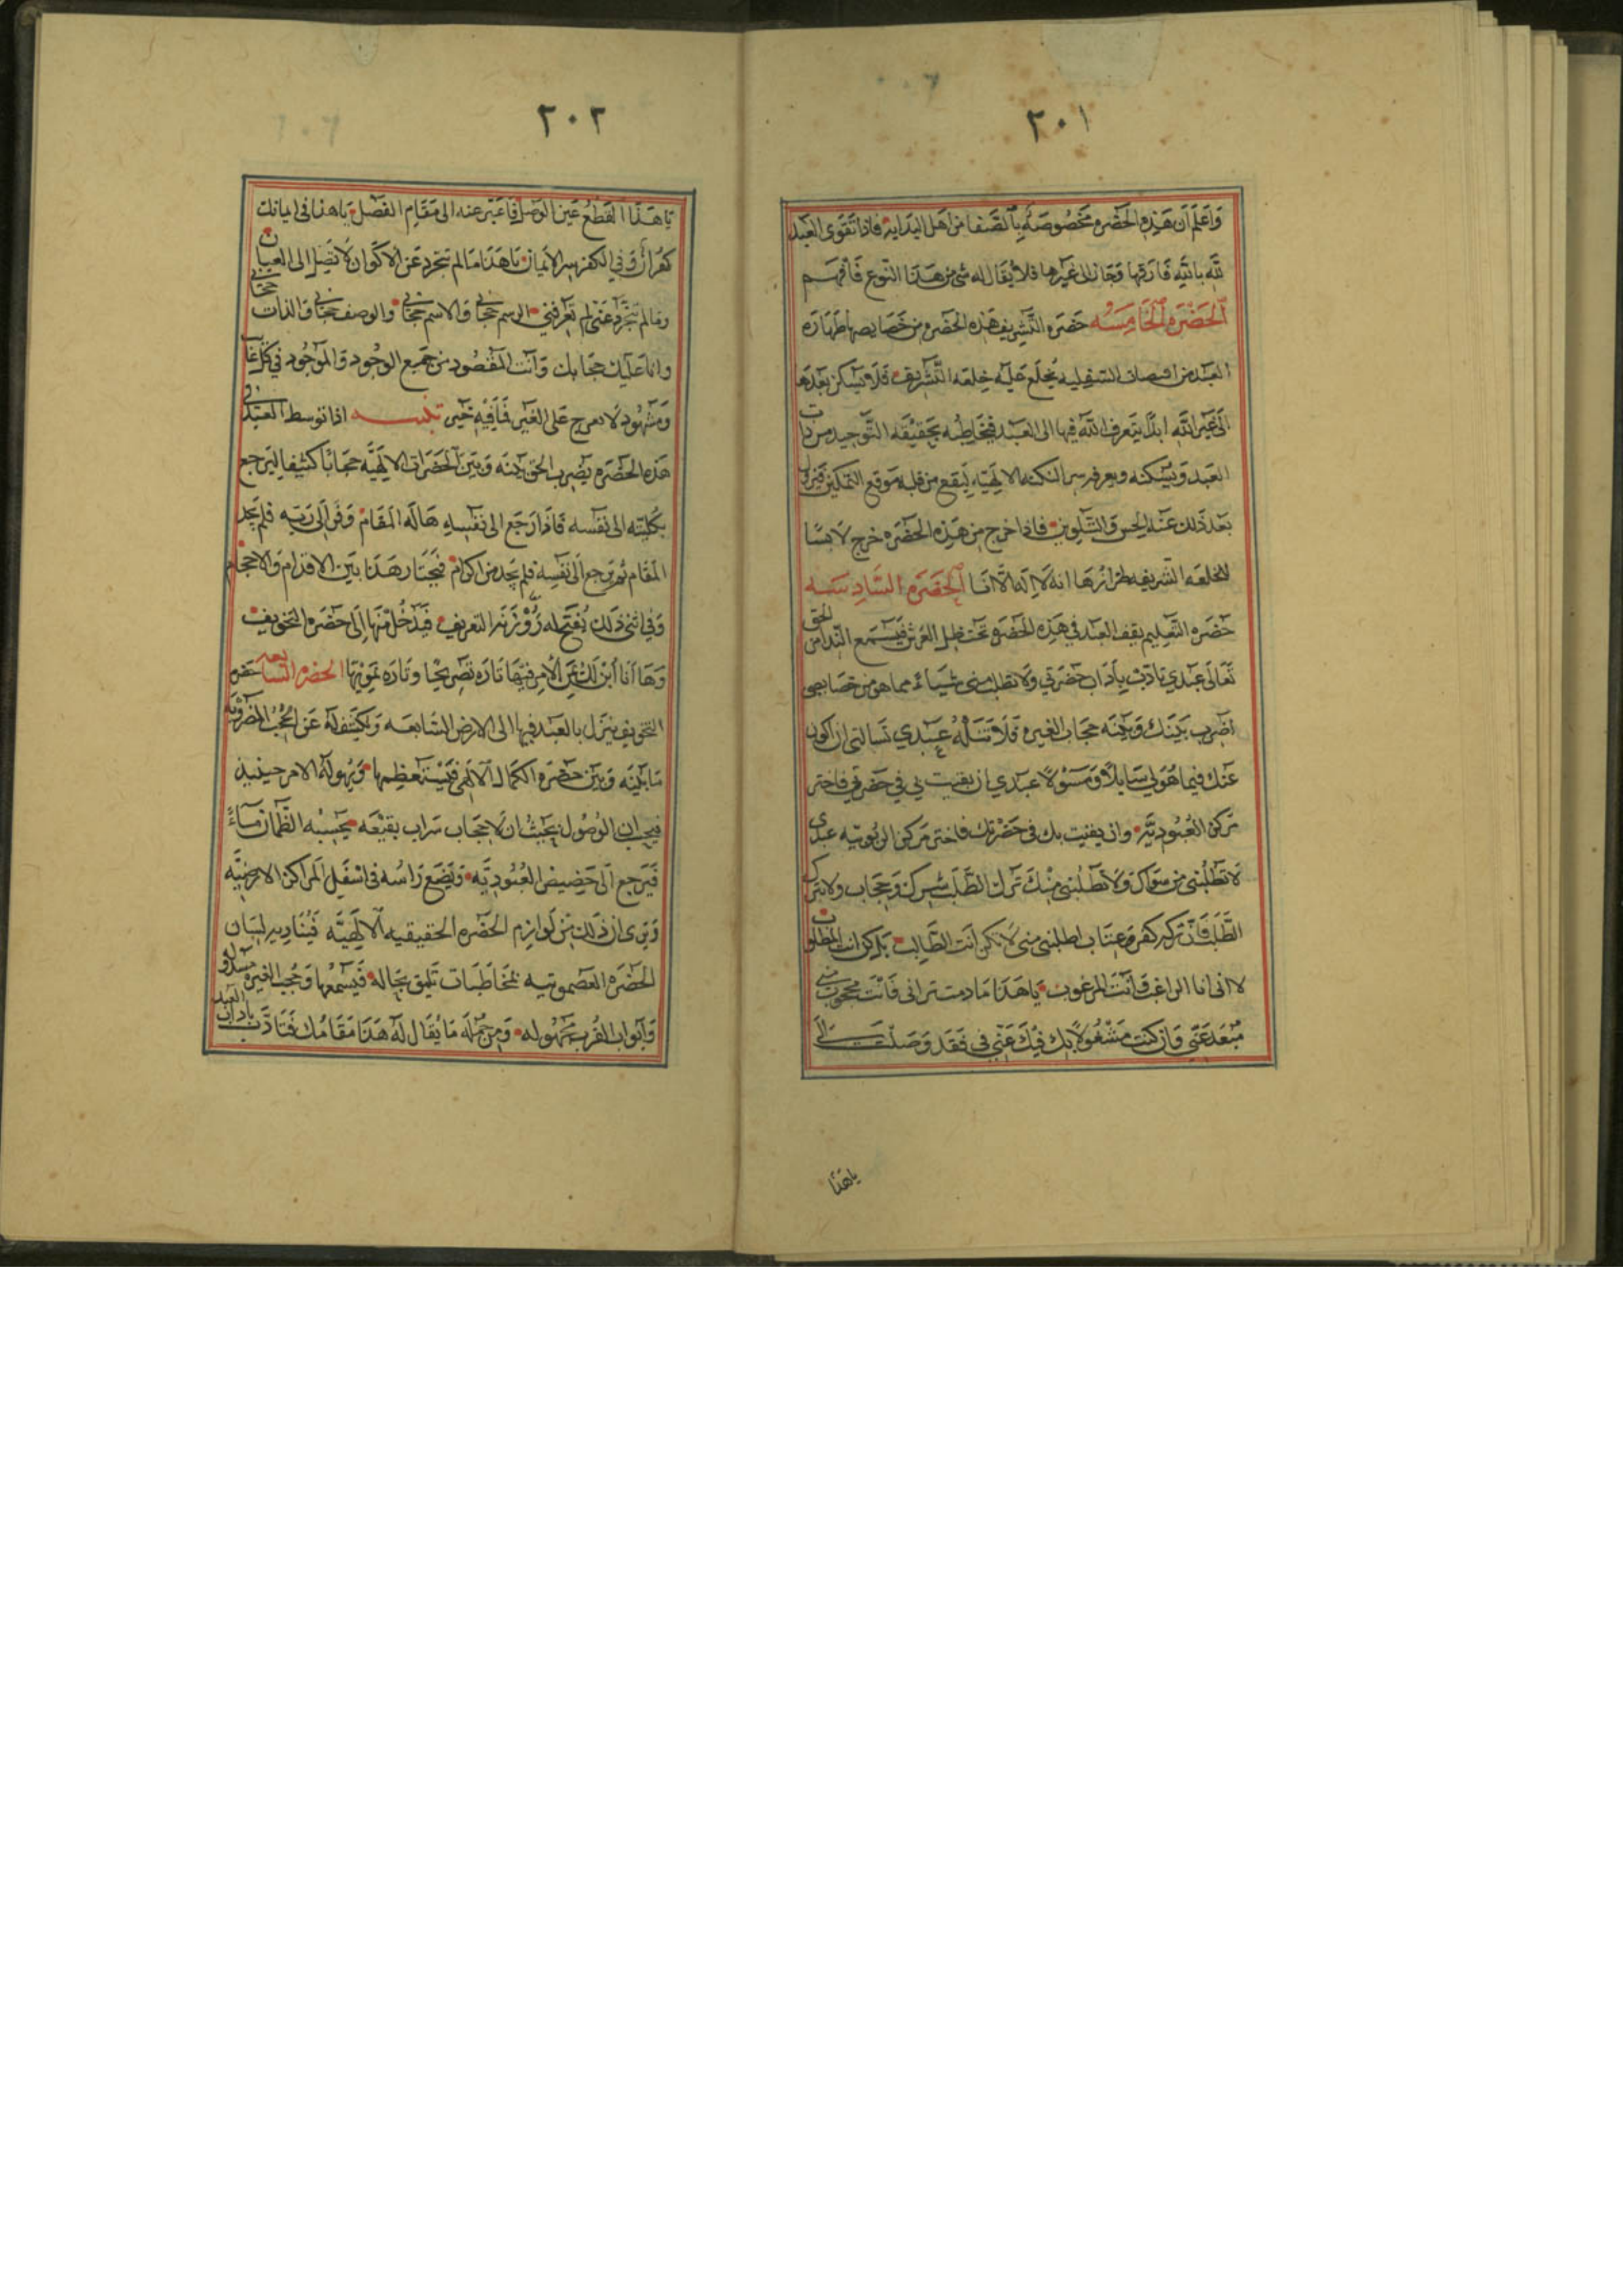 ٢٠١
وَاعْلَم اَن هَذِهِ الحَضْرَه مَخْصُوصَةٌ بِالضعفا مِن اَهل البدايه فاذا تَقوى العَبد
لله بالله فَارَقَها وَجَازَ الى غيرها فلا يُقال له شئ من هَذا النّوع فَافهَم
الحَضْرَه الخَامِسَه حَضرَه التَّشريف هَذه الحَضْره من خَصَايصها طَهَارَه
العَبد من السفليه يُخلَع عَليه خِلعَه التَّشريف فَلا يَسكن بَعدَها
الى غَير الله ابدًا يتَعرف الله فيها الى العَبد فيخَاطِبُه بحَقيقَه التَّوحيد من ذات
العَبد وَيُسكنه ويعرفه سر النكته الالهيّه ليَقع من قلبه مَوقع التمكين فيَزول
بَعد ذَلك عَنه الحِس وَالتَّلوين فاذا خرج من هَذِه الحَضْرَه خَرج لابسًا
للخلعَه الشريفه طرازُهَا انه لا اله الّا انَا الحَضْرَه السَّادِسَه
حَضْرَه التَّعليم يقف العَبد في هَذِه الحَضْره تحت ظِل العَرش فيَسمَع النِّدا من الحق
تَعَالى عَبدي تادَّب بِآدَاب حَضْرَتي وَلا تطلب مني شَياء مما هو من خصايصي
اضرب بَينَك وَبَينَه حجَاب الغيره فَلا تَنلهُ عَبدي تَسالني ان اكون
عَنك فيما هُو لي سَايلاً وَمَسؤلاً عبدي ان بقيت بي في حَضرَتي فاختر
مَركز العُبوديَّه وان بقيت بك في حَضْرتك فاختر مَركز الربُوبيه عبدي
لَا تطلبني من سوَاك وَلَا تطلبني مِنك ترك الطَّلب شِرك وَحجَاب ولا تترك
الطَّلب فَان تركه كفر وَعتَاب اطلبني مني لا تكن انت الطَّالب بَل كن انت المطلوب
لانى انا الراغب وَانت المرغوب يا هَذا مَادمت ترانى فَانت محجوب عني
مبعَد عَنّي وَان كنت مَشغُولاً بك فيك عَنّي في فقد وَصَلت الى
يا هذا
٢٠٢
يَا هَذا القَطع عَين الوَصل فَاعبَر عنه الى مَقَام الفَصْل يا هذا فى ايمانك
كفران وَفي الكفر سر الايمان يا هَذا مَا لم تتجرد عَن الاكوان لَا تصِل الى العيان
وَمالم تتجَرَّد عَني لم تَعرفني الرسم حجابي وَالاسم حجابي والوصف حجابي وَالذات حجابي
وانا عَليك حجَابك وَانت المقصُود من جَميع الوجُود وَالموجُود في كل غايب
وَمشهُود لا تعرج عَلى الغَير فَمَا فِيه خَير تنبيه اذا توسط العَبد في
هَذه الحَضْرَه يَضرب الحَق بَينَه وَبَين الحضَرات الالهيّه حجَابًا كثيفا ليَرجع
بكليّته الى نفسه فَاذا رَجَع الى نفسِهِ هَاله المَقَام وَفَر الى رَبّه فلم يجد
المَقَام ثم يَرجع الى نَفسِه فلم يَجد من اكرام فيَحتَار هَذا بَين الاقدام وَالاحجام
وَفي اثنى ذلك يُفتَح له رَوْزَنَه التعريف فيَدخُل مِنهَا الى حَضْرَه التخويف
وَهَا انا ابيّن لك عَن الامر فيهَا تاره تَصريحًا وتَاره تمويها الحَضره السَّابعَه حضره
التخويف ينزل بالعَبد فيها الى الارض السَّابعَه وَيكشف له عَن الحُجب المضروبه
مَا بَينه وَبَين حَضْرَه الكمَال الالهى فيَستعظمها وَيَهوله الامر حينيذ
الوُصُول بِحَيثُ ان لا حجَاب سَراب بقيعَه يحَسِبُه الظَّمان مَاءً
فيَرجع الى حَضِيض العُبُوديَّه وَيَضَع رَاسُه فى اسفَل المَراكز الارضيَّه
وَيَرى ان ذَلك مِن لوازِم الحَضْره الحقيقيه الالهيَّه فيُناديه لسَان
الحَضرَه العصموتيه بمُخَاطبَات تَليق بحَاله فَيَسمعُها وَحُجب الغيره مسدُوله
وَابواب القُرب مجهُوله وَمن جُمله مَا يُقَال لَه هَذا مَقَامُك فَتَادَّب بآداب العَبد